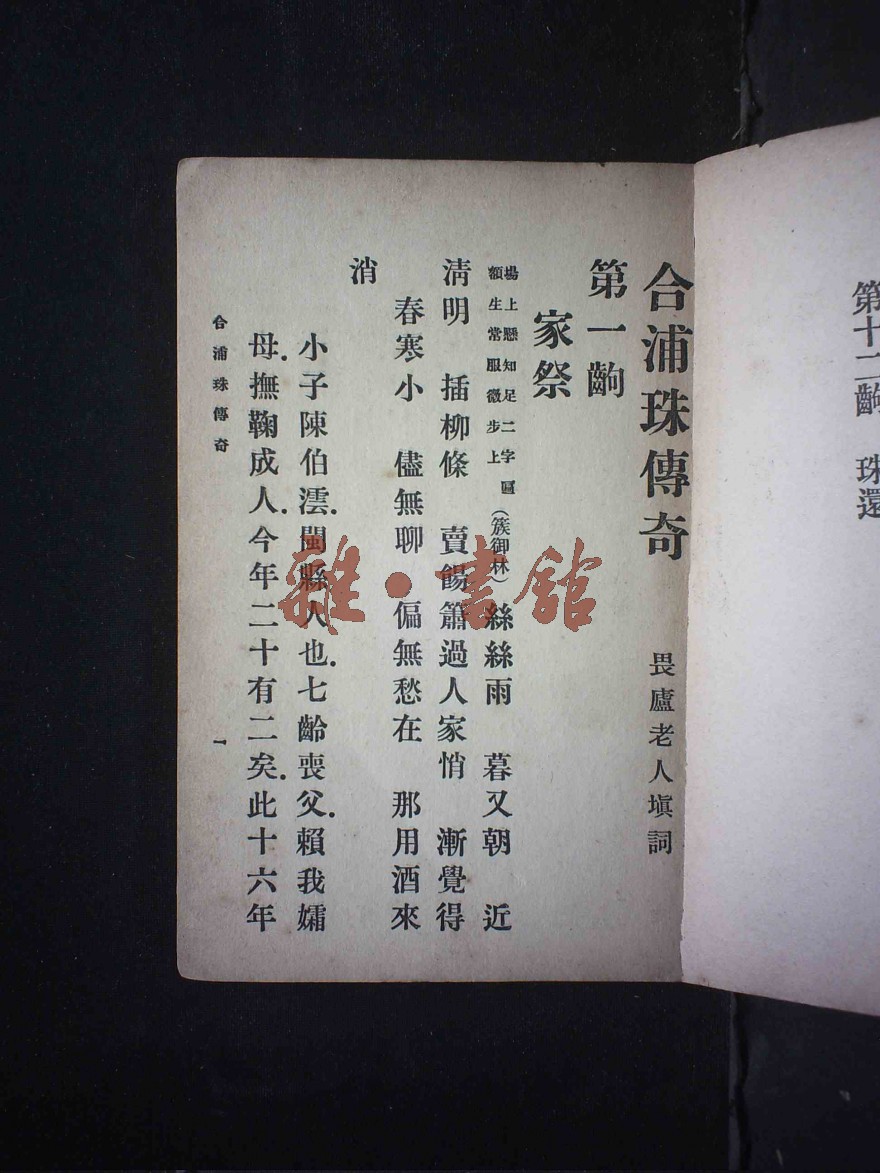 第十二齣 珠還
合浦珠傳奇 畏廬老人塡詞
第一齣
家祭
場上懸知足二字匾
額生常服微步上
(簇御林)絲絲雨 暮又朝 近
淸明 插柳條 賣餳簫過人家悄 漸覺得
春寒小 儘無聊 偏無愁在 那用酒來
消
小子陳伯澐.閩縣人也.七齡喪父.賴我孀
母.撫鞠成人.今年二十有二矣.此十六年
合浦珠傳奇 一
雜·書館